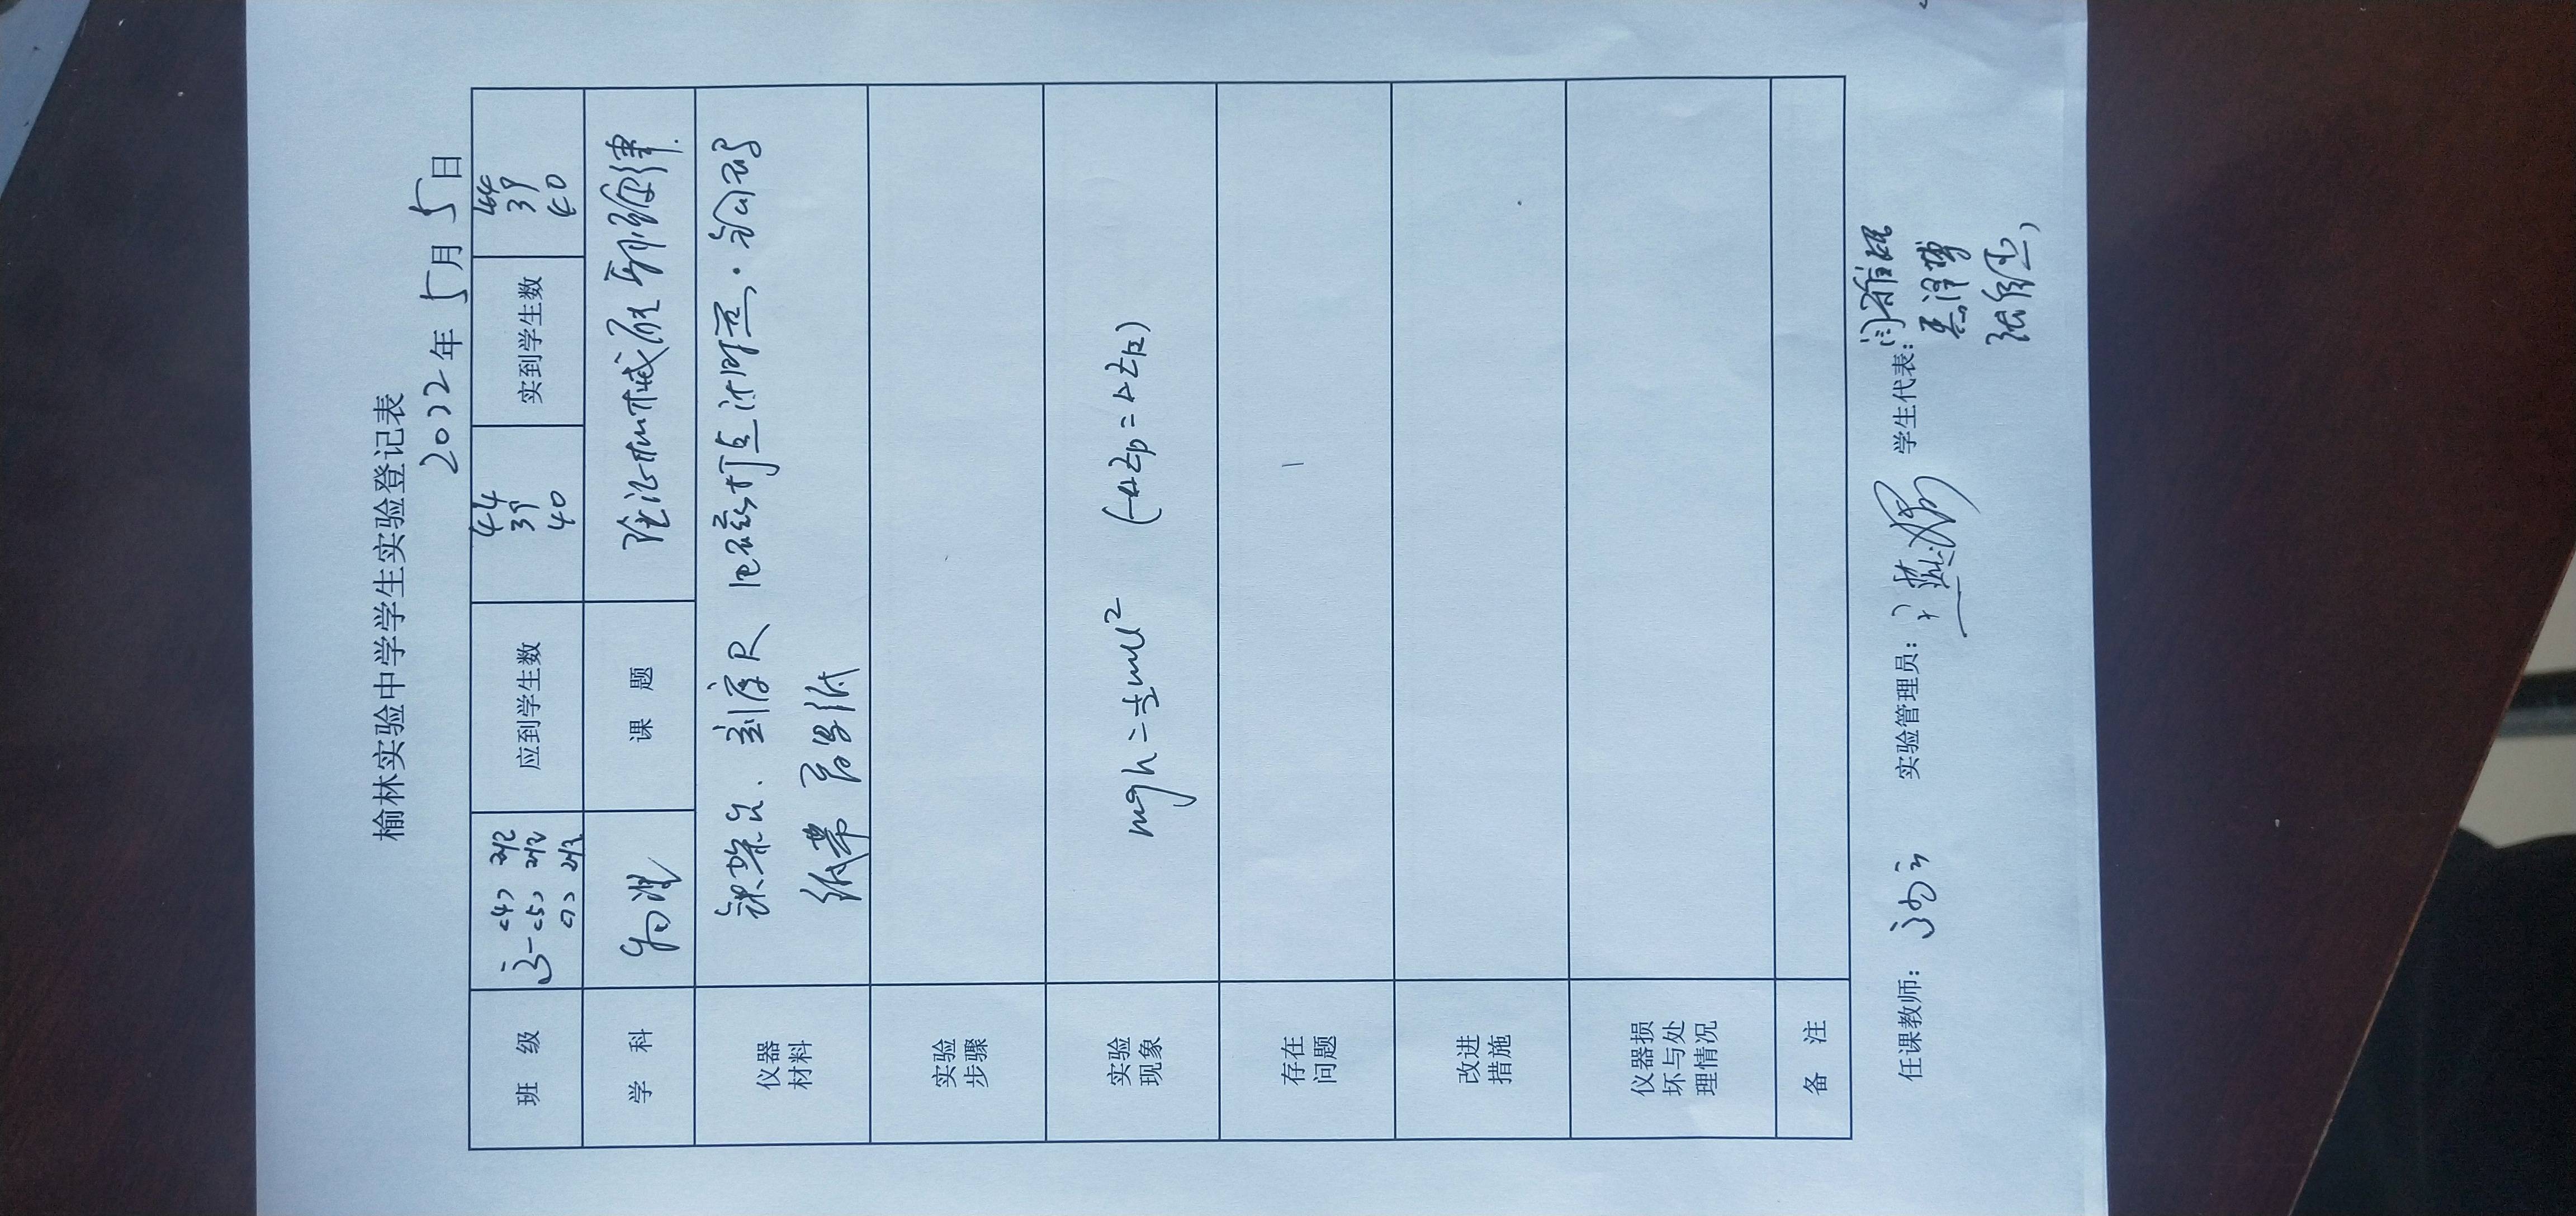 榆林实验中学学生实验登记表
2022年5月5日
班 级 高一(4) 理2 应到学生数 44 实到学生数 44
(5) 理2 39 39
(7) 理2 40 40
学 科 物理 课 题 验证机械能守恒定律.
仪器材料 铁架台、刻度尺 电磁打点计时器、钩码
纸带 复写纸
实验步骤
实验现象 mgh=½mv² (-ΔEp=ΔEk)
存在问题
改进措施
仪器损坏与处理情况
备 注
任课教师: 实验管理员: 学生代表: